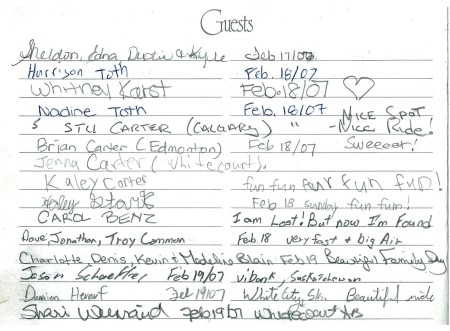 Guests
Sheldon, Edna, Dustin & Kyle Feb 17/07
Harrison Toth Feb. 18/07
Whitney Karst Feb. 18/07 ♡
Nadine Toth Feb. 18/07 NICE SPOT
STU CARTER (CALGARY) " -NICE Ride!
Brian Carter (Edmonton) Feb 18/07 Sweeeet!
Jenna Carter (whitecourt).
Kaley Carter fun fun fun fun fun!
Feb 18 sunday fun fun!
CAROL BENZ I am Lost! But now I'm Found
Dave, Jonathan, Troy Common Feb 18 very fast & big Air
Charlotte, Denis, Kevin & Madeline Blain Feb 19 Beautiful Family Day
Jason Schaeffer Feb 19/07 Vibank, Saskatchewan
Damian Feb 19/07 White City Sk. Beautiful ride
Shari Feb 19/07 Whitecourt